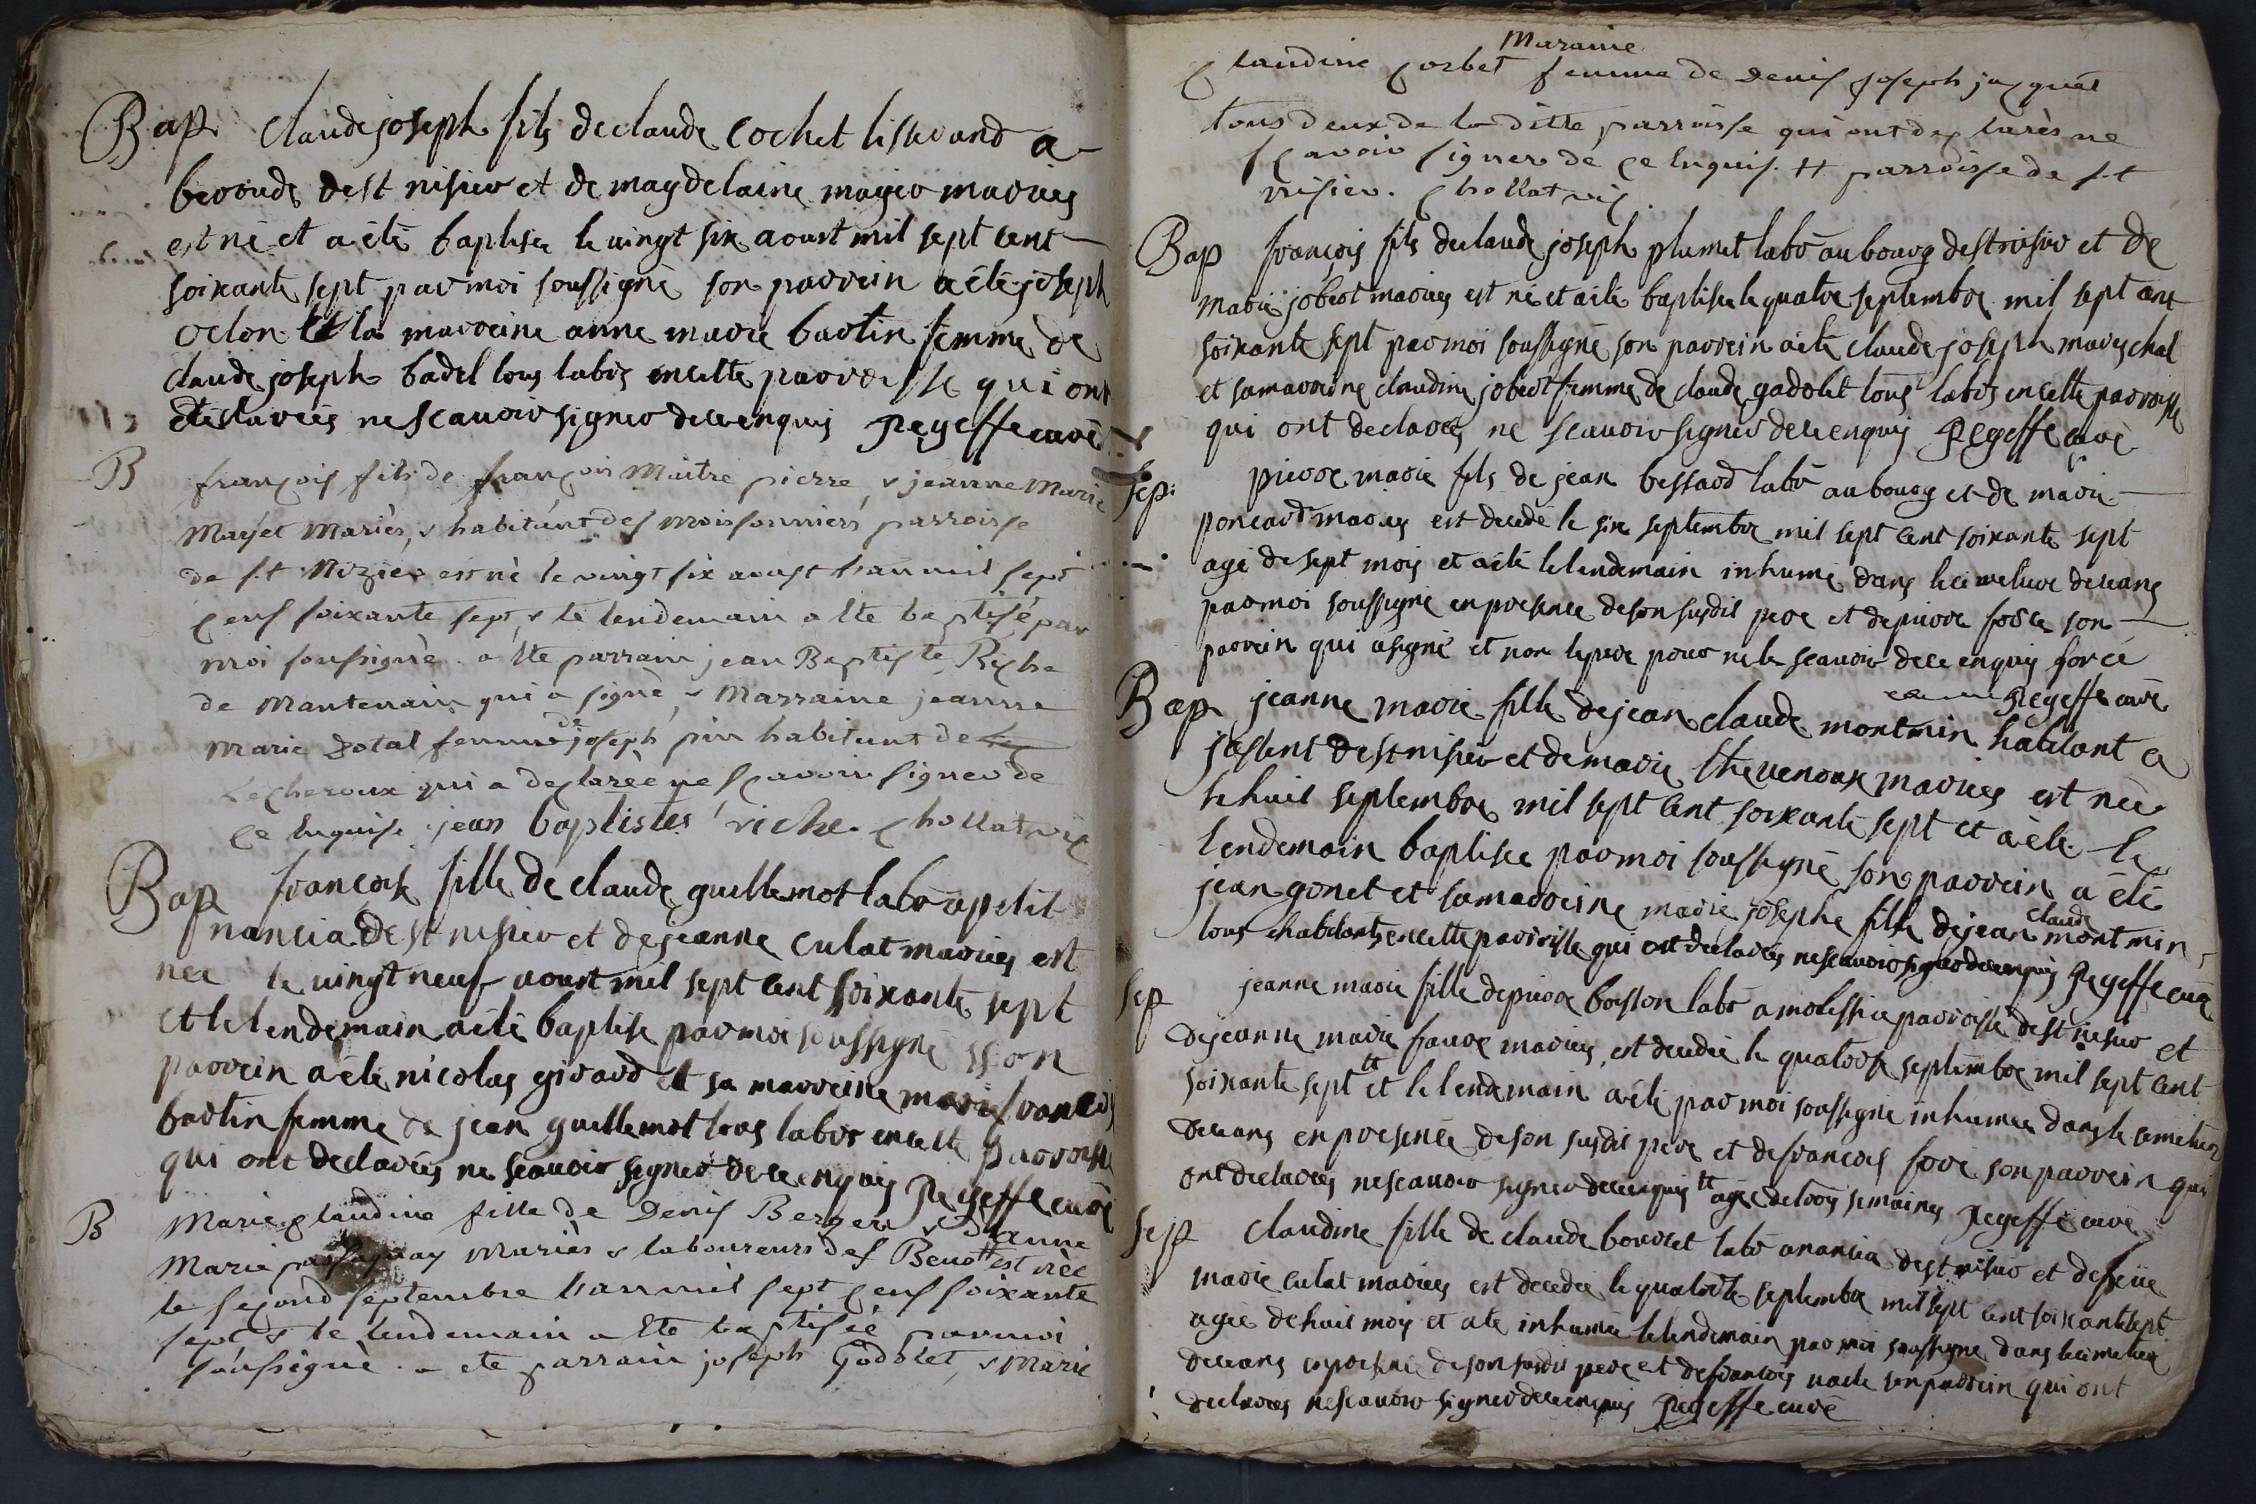 Bap claude joseph fils de claude cochet tisserand a
beroude de st nisier et de magdelaine mayer mariés
est né et a été baptisée le vingt six aoust mil sept cent
soixante sept par moi soussigné son parrein a été joseph
odon et la marreine anne marie bartin femme de
claude joseph badel tous labrs en cette parroisse qui ont
déclareés ne scavoir signer de ce enquis Pegeffe curé
B françois fils de françois Maitre pierre, & jeanne Marie
Mayet Mariés, & habitant des moissonniers parroisse
de s.t Nizier est né le vingt six aoust l'an mil sept
cens soixante sept, & le lendemain a ete baptisé par
moi soussigné. a ete parrain jean Baptiste Riche
de Mantenair qui a signé, & Marraine jeanne
Marie Dotal femme de joseph pin habitant de
Lecheroux qui a declarée ne sçavoir signer de
ce enquise. jean baptistes riche. Chollat vic
Bap françoise fille de claude guillemot labr a petit
nancia de st nisier et de jeanne culat mariés est
née le vingt neuf aoust mil sept cent soixante sept
et le lendemain a été baptisé par moi soussigné son
parrein a été nicolas girard et sa marreine marie francois
bartin femme de jean guillemot tous labrs en cette parroisse
qui ont declareés ne scavoir signer de ce enquis Pegeffe curé
B Marie claudine fille de Denis Berger & D'anne
Marie Mariés & laboureurs des Benott est née
le second septembre l'an mil sept cens soixante
sept & le lendemain a ete baptisée par moi
soussigné. a ete parrain joseph Godblet, & Marie
Maraine
Claudine Corbet femme de Denis joseph jacquet
tous deux de la ditte parroisse qui ont declarés ne
sçavoir signer de ce enquis. tt parroisse de s.t
nisier. Chollat vic
Bap françois fils de claude joseph plumet labr au bourg de st nisier et de
marie jobert mariés est né et a été baptisée le quatre septembre mil sept cent
soixante sept par moi soussigné son parrein a été claude joseph mareschal
et sa marreine claudine jobert femme de claude gadolet tous labrs en cette parroisse
qui ont declareés ne scavoir signer de ce enquis Pegeffe curé
sep: pierre marie fils de jean bessard labr au bourg et de marie
poncard mariés est decedé le six septembre mil sept cent soixante sept
agé de sept mois et a été le lendemain inhumé dans le cimetiere de ceans
par moi soussigné en presence de son susdit pere et de pierre force son
parrein qui a signé et non le pere pour ne le scavoir de ce enquis force
Pegeffe curé
Bap jeanne marie fille de jean claude montmin habitant a
de st nisier et de marie thevenoux mariés est née
le huit septembre mil sept cent soixante sept et a été le
lendemain baptisée par moi soussigné son parrein a été
jean gonet et sa marreine marie josephe fille de jean claude montmin
tous habitants en cette parroisse qui ont declareés ne scavoir signer de ce enquis Pegeffe curé
sep jeanne marie fille de pierre boisson labr a molissia parroisse de st nisier et
de jeanne marie faure mariés, est decedée le quatorze septembre mil sept cent
soixante sept tt et le lendemain a été par moi soussigné inhumée dans le cemetiere
de ceans en presence de son susdit pere et de francois fore son parrein qui
ont declareés ne scavoir signer de ce enquis tt agée de trois semaines Pegeffe curé
sep Claudine fille de claude borret labr a nancia de st nisier et de feüe
marie culat mariés est decedée le quatorze septembre mil sept cent soixante sept
agée de huit mois et a été inhumée le lendemain par moi soussigné dans le cimetiere
de ceans en presence de son susdit pere et de francois son parrein qui ont
declareés ne scavoir signer de ce enquis Pegeffe curé